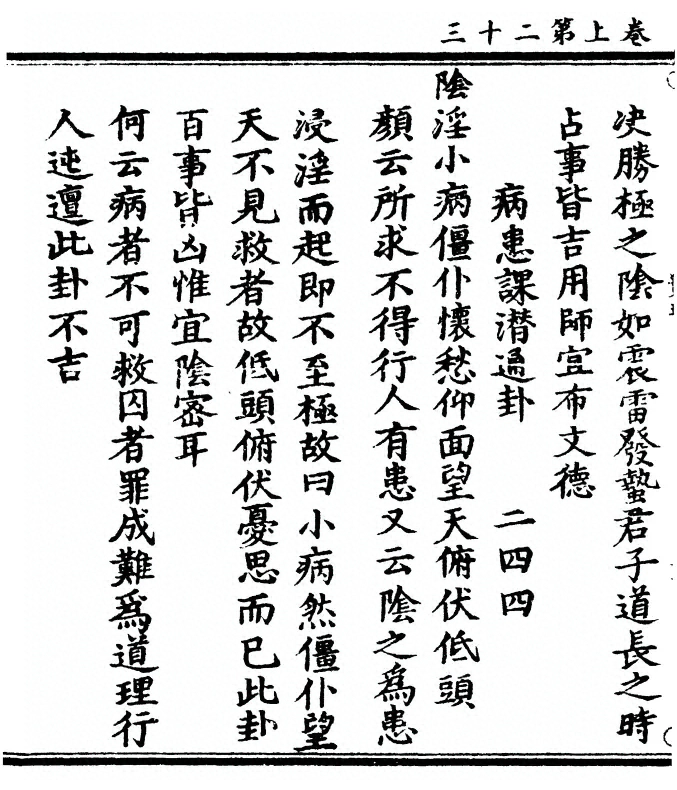 卷上第二十三
决勝極之陰如震雷發蟄君子道長之時
占事皆吉用師宜布文德
病患課潜過卦 二四四
陰淫小病僵仆懷愁仰面望天俯伏低頭
顏云所求不得行人有患又云陰之爲患
浸淫而起即不至極故曰小病然僵仆望
天不見救者故低頭俯伏憂思而已此卦
百事皆凶惟宜陰密耳
何云病者不可救囚者罪成難爲道理行
人迍邅此卦不吉